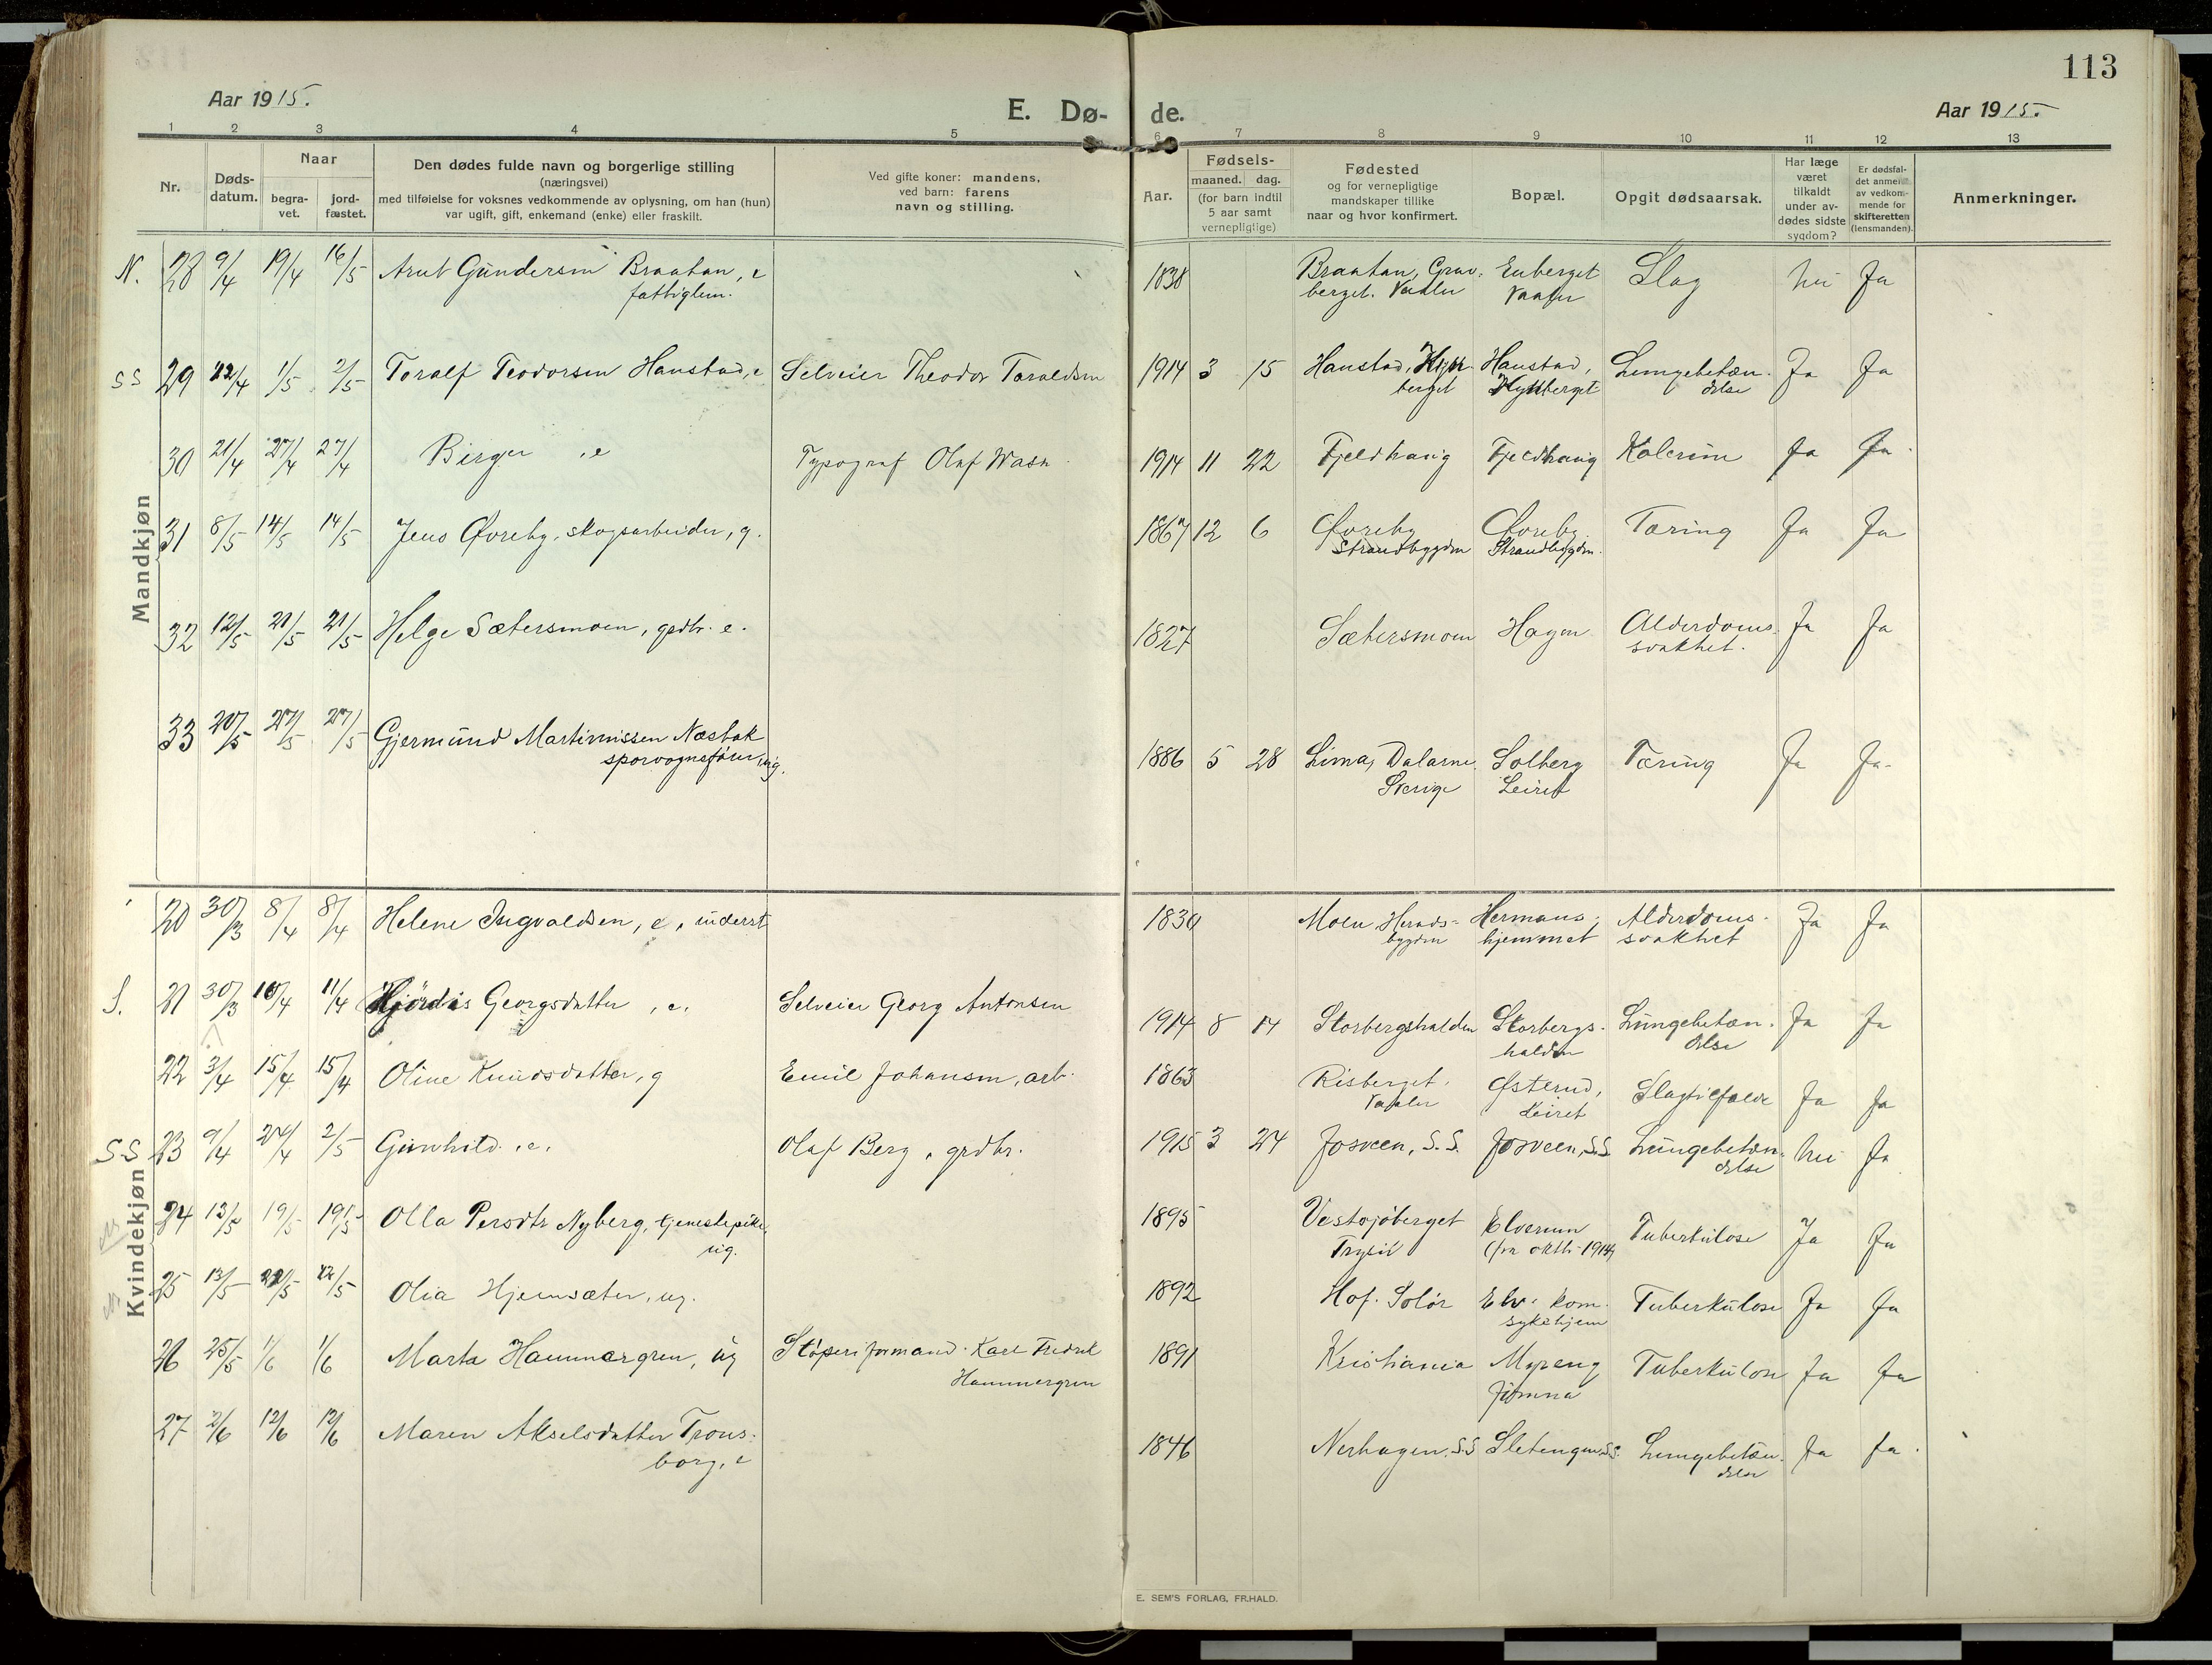 113
Aar 1915.
E. Dø-
de.
Aar 1915.
1 2 3 4 5 6 7 8 9 10 11 12 13
Nr.
Døds-
datum.
Naar
begra-
vet.
jord-
fæstet.
Den dødes fulde navn og borgerlige stilling
(næringsvei)
med tilføielse for voksnes vedkommende av oplysning, om han (hun)
var ugift, gift, enkemand (enke) eller fraskilt.
Ved gifte koner: mandens.
ved barn: farens
navn og stilling.
Aar.
Fødsels-
maaned. dag.
(for barn indtil
5 aar samt
vernepligtige)
Fødested
og for vernepligtige
mandskaper tillike
naar og hvor konfirmert.
Bopæl.
Opgit dødsaarsak.
Har læge
været
tilkaldt
under av-
dødes sidste
sygdom?
Er dødsfal-
det anmeldt
av vedkom-
mende for
skifteretten
(lensmanden).
Anmerkninger.
Mandkjøn
N. 28 9/4 19/4 16/5 Arnt Gundersen Braatan, e 1838 Braatan, Grav- Enberget Slag nei Ja
fattiglem. berget. Vaaler Vaaler
SS 29 22/4 1/5 2/5 Toralf Teodorsen Hanstad, e Selveier Theodor Toraldsen 1914 3 15 Hanstad, Hanstad, Lungebetæn- Ja Ja
berget delse
30 21/4 27/4 27/4 Birger , e Typograf Olaf Wasa 1914 11 22 Fjeldhaug Fjeldhaug Kolerine Ja Ja
31 8/5 14/5 14/5 Jens Øvreby, skogsarbeider, g. 1867 12 6 Øvreby Øvreby Tæring Ja Ja
Strandbygden Strandbygden.
32 12/5 21/5 21/5 Helge Sætersmoen, grdbr. e. 1827 Sætersmoen Hagen Alderdoms- Ja Ja
svakhet.
33 20/5 27/5 27/5 Gjermund Martinussen Næsbak 1886 5 28 Lima, Dalarne Solberg Tæring Ja Ja
sporvognsfører, ug. Sverige Leiret
Kvindekjøn
20 30/3 8/4 8/4 Helene Ingvaldsen, e, inderst 1830 Moen Hernds- Hermans- Alderdoms- Ja Ja
bygden hjemmet svakhet
S. 21 30/3 10/4 11/4 Hjördis Georgsdatter , e. Selveier Georg Antonsen 1914 8 14 Storbergshalden Storbergs- Lungebetæn- Ja Ja
halden delse
22 3/4 15/4 15/4 Oline Knudsdatter, g Emil Johansen, arb. 1863 Risberget, Østerud, Slagtilfælde Ja Ja
Vaaler Leiret
SS 23 9/4 24/4 2/5 Gunhild , e. Olaf Berg, grdbr. 1915 3 24 Josveen, S.S. Josveen, S.S. Lungebetæn- nei Ja
delse
24 13/5 19/5 19/5 Olla Persdtr Nyberg, tjenestepike, 1895 Vestsjöberget Elverum Tuberkulose Ja Ja
ug. Trysil (fra oktbr. 1914)
25 13/5 22/5 22/5 Olia Hjemsæter, ug. 1892 Hof. Solör Elv. kom. Tuberkulose Ja Ja
sykehjem
26 25/5 1/6 1/6 Marta Hammergren, ug Støperiformand Karl Fredrik 1891 Kristiania Myreng Tuberkulose Ja Ja
Hammergren Jömna
27 2/6 12/6 12/6 Maren Akselsdatter Trons- 1846 Nerhagen, S.S Sletengen S.S. Lungebetæn- Ja Ja
borg, e delse
E. SEM'S FORLAG, FR.HALD.